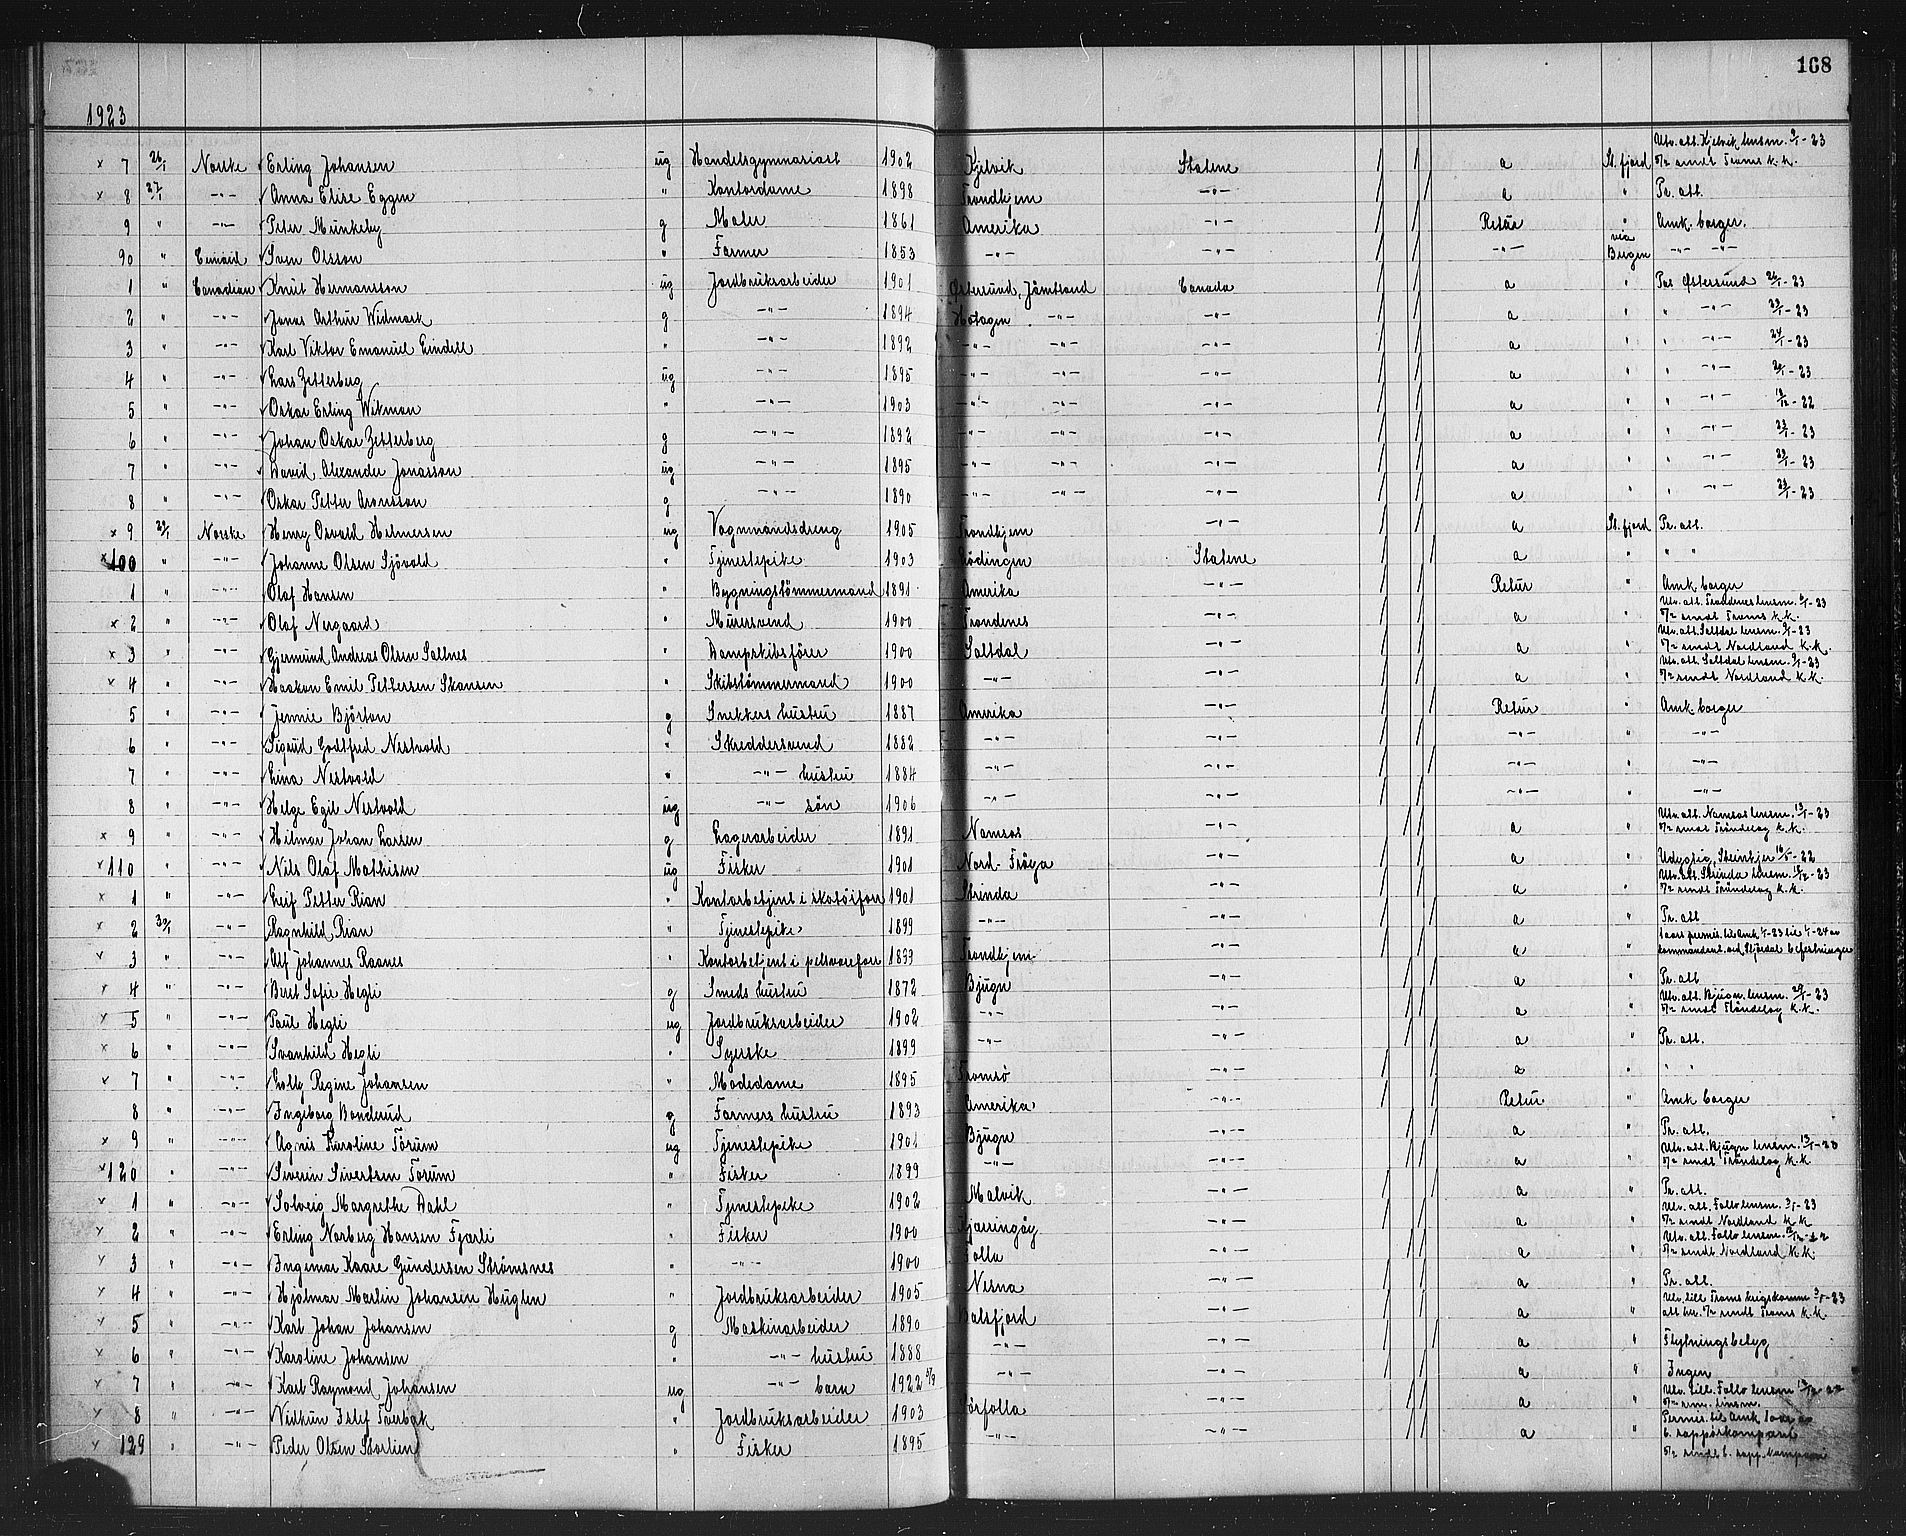 168
1923
x 7 26/1 Norske Erling Johansen ug Handelsgymnasiast 1902 Kjelvik Statene a St. fjord Utv. att. Kjelvik lensm. 9/1-23 5/2 sendt Troms k.k.
x 8 27/1 -"- Anna Elise Eggen " Kontordame 1898 Trondhjem -"- a " Pr. att.
9 " -"- Peter Munkeby g Maler 1861 Amerika -"- Retur " Amk. borger.
90 " Cunard Sven Olsson " Farmer 1853 -"- -"- -"- via Bergen -"- -"-
1 " Canadian Knut Hermansson ug Jordbruksarbeider 1901 Østersund, Jämtland Canada a " Pas Østersund 26/1-23
2 " -"- Jonas Arthur Widmark g -"- 1894 Hotagen -"- -"- a " " -"- 23/1-23
3 " -"- Karl Viktor Emanuel Lindell " -"- 1892 -"- -"- -"- a " " -"- 24/1-23
4 " -"- Lars Zetterberg ug -"- 1895 -"- -"- -"- a " " -"- -23
5 " -"- Oskar Erling Wikman " -"- 1903 -"- -"- -"- a " " -"- -22
6 " -"- Johan Oskar Zetterberg g -"- 1892 -"- -"- -"- a " " -"- 23/1-23
7 " -"- David Alexander Jonasson ug -"- 1895 -"- -"- -"- a " " -"- 23/1-23
8 " -"- Oskar Petter Aronsson g -"- 1890 -"- -"- -"- a " " -"- 23/1-23
x 9 29/1 Norske Henry Osvald Helmersen ug Vognmandsdreng 1905 Trondhjem -"- a St. fjord Pr. att.
x 100 " -"- Johanne Olsen Sjövold " Tjenestepike 1903 Lödingen Statene a " " "
1 " -"- Olaf Hansen " Bygningstömmermand 1891 Amerika -"- Retur " Amk. borger
x 2 " -"- Olaf Nergaard " Murersvend 1900 Trondenes -"- a " Utv. att. Trondenes lensm. -23 5/2 sendt Troms k.k.
x 3 " -"- Gjermund Andreas Olsen Saltnes " Dampskibsförer 1900 Saltdal -"- a " Utv. att. Saltdal lensm. 9/1-23 5/2 sendt Nordland k.k.
x 4 " -"- Haakon Emil Pettersen Skansen " Skibstömmermand 1900 -"- -"- a " Utv. att. Saltdal lensm. 9/1-23 5/2 sendt Nordland k.k.
5 " -"- Jennie Björton g Snekkers hustru 1887 Amerika -"- Retur " Amk. borger
6 " -"- Sigurd Godtfred Nestvold " Skreddersvend 1882 -"- -"- -"- " -"-
7 " -"- Lina Nestvold " -"- hustru 1884 -"- -"- -"- " -"-
8 " -"- Helge Egil Nestvold ug -"- sön 1906 -"- -"- -"- " -"-
x 9 " -"- Hilmar Johan Larsen g Lagerarbeider 1891 Namsos -"- a " Utv. att. Namsos lensm. 13/1-23 5/2 sendt Tröndelag k.k.
x 110 " -"- Nils Olaf Mathisen ug Fisker 1901 Nord-Fröya -"- a " Udygtig, Steinkjer -22
x 1 " -"- Leif Petter Rian " Kontorbetjent i skotöiforr. 1901 Strinda -"- a " Utv. att. Strinda lensm. -23 5/2 sendt Tröndelag k.k.
x 2 30/1 -"- Ragnhild Rian " Tjenestepike 1899 -"- -"- a " Pr. att
x 3 " -"- Alf Johannes Raanes " Kontorbetjent i pelsvareforr 1899 Trondhjem -"- a " 1 aars permis. til Amk 1/1-23 til 1/1-24 av kommandant. ved Stjördal befestninger
x 4 " -"- Beret Sofie Hegli g Smeds hustru 1872 Bjugn -"- a " Pr. att
x 5 " -"- Paul Hegli ug Jordbruksarbeider 1902 -"- -"- a " Utv. att. Bjugn. lensm. 29/1-23 5/2 sendt Tröndelag k.k.
x 6 " -"- Svanhild Hegli " Syerske 1899 -"- -"- a " Pr. att.
x 7 " -"- Lolly Regine Johansen " Modedame 1895 Tromsö -"- a " " "
8 " -"- Ingeborg Bonderud g Farmers hustru 1893 Amerika -"- Retur " Amk borger
x 9 " -"- Agnes Karoline Törum ug Tjenestepike 1901 Bjugn -"- a " Pr. att.
x 120 " -"- Siverin Sivertsen Torum " Fisker 1899 -"- -"- a " Utv. att. Bjugn lensm. 13/1-23 5/2 sendt Tröndelag k.k
x 1 " -"- Solveig Margrethe Dahl " Tjenestepike 1902 Malvik -"- a " Pr. att.
x 2 " -"- Erling Norberg Hansen Fjærli " Fisker 1900 Kjærringöy -"- a " Utv. att. Folla lensm. 3/1-23 5/2 sendt Nordland k.k
x 3 " -"- Ingemar Kaare Gundersen Strömsnes " -"- 1900 Folla -"- a " Utv. att. Folla lensm. 5/2 sendt. Nordland k.k.
x 4 " -"- Hjalmar Martin Johansen Huglen " Jordbruksarbeider 1905 Nesna -"- a " Pr. att.
x 5 " -"- Karl Johan Johansen g Maskinarbeider 1890 Balsfjord -"- a " Utv. till. Troms krigskomm 3/1-23 5/2 sendt Troms k.k.
x 6 " -"- Karoline Johansen " -"- hustru 1888 -"- -"- a " Flytningsbelyg
x 7 " -"- Karl Raymond Johansen ug -"- barn 1922 -"- -"- a " Ingen
x 8 " -"- Vidkun Islef Tverbak " Jordbruksarbeider 1903 Sörfolla -"- a " Utv. till. Folla lensm
x 129 " -"- Peder Olsen Storlien " Fisker 1895 -"- -"- a " Permis. til Amk 5/2 sendt